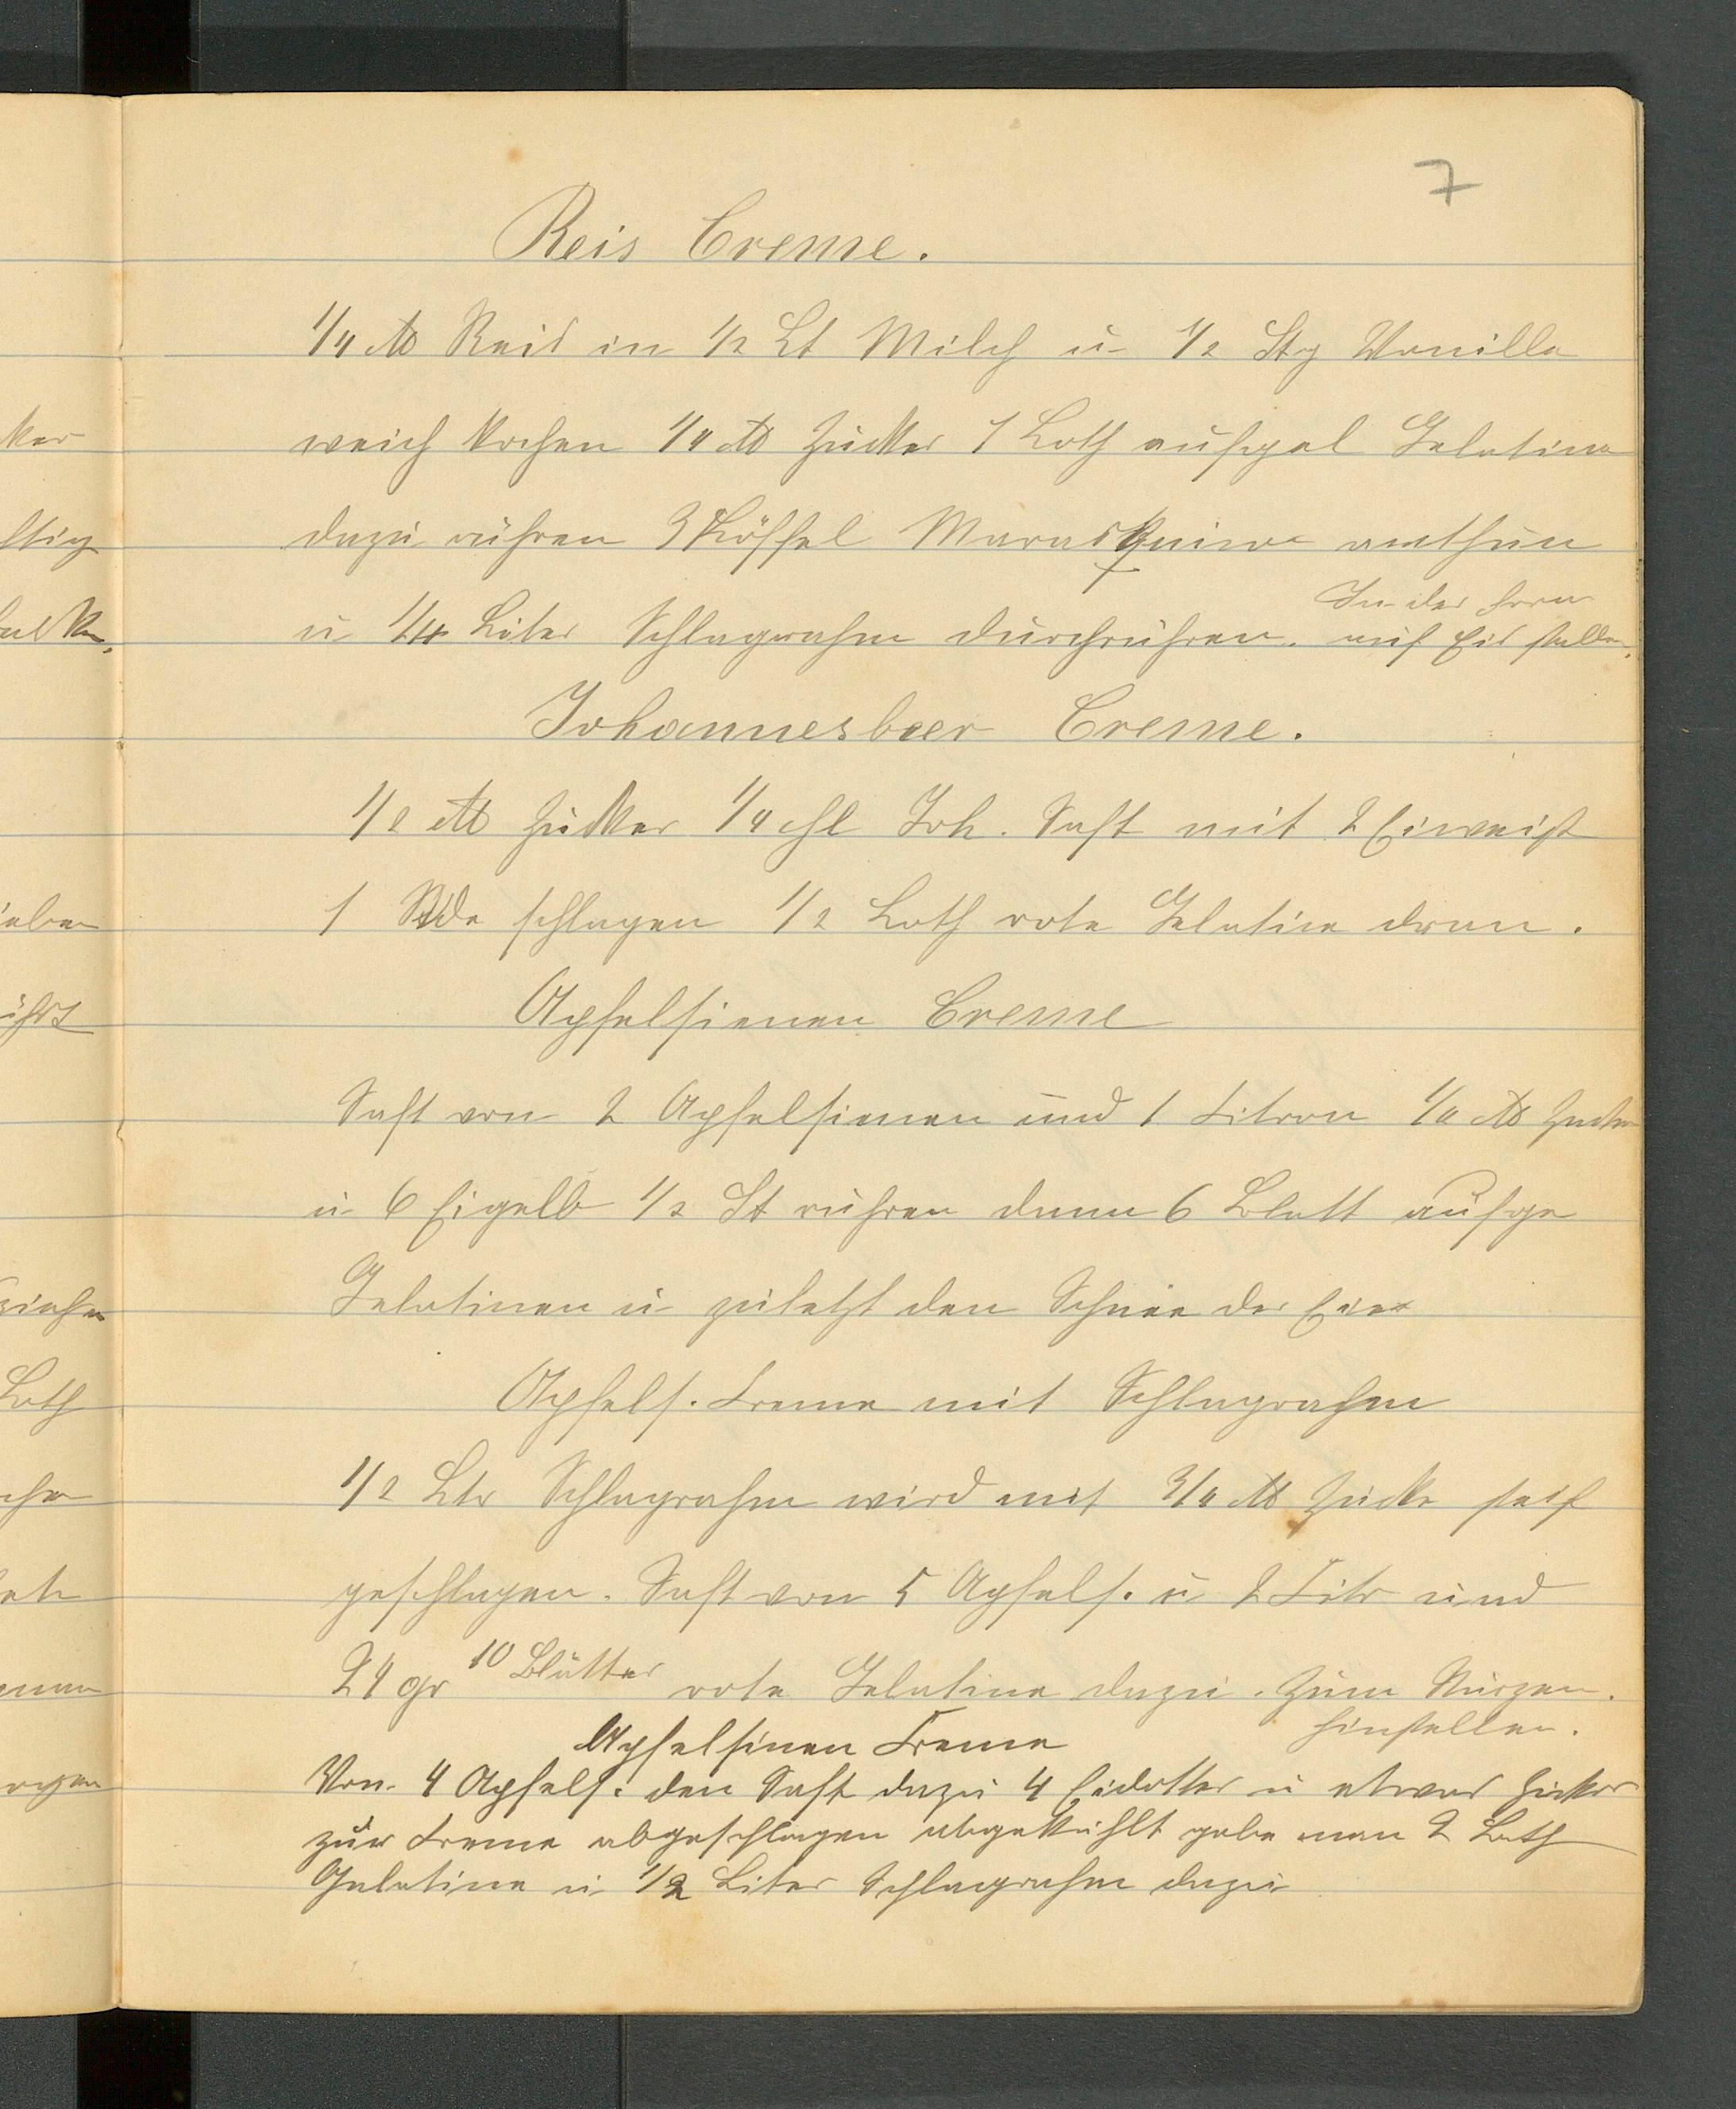 7
Reis Creme.
1/4 ℔ Reis in 1/2 Lt Milch u 1/2 Stg Vanille
weich kochen 1/4 ℔ Zucker 1 Loth aufgel Gelatine
dazu rühren 3 Löffel Marasquino anthun
u 1/4 Liter Schlagrahm durchrühren. In der Form
auf Eis stellen.
Johannesbeer Creme.
1/2 ℔ Zucker 1/4 Joh. Saft mit 2 Eiweiß
1 Stde schlagen 1/2 Loth rote Gelatine dran.
Apfelsienen Creme
Saft von 2 Apfelsienen und 1 Citron 1/4 ℔ Zucker
u 6 Eigelb 1/2 St rühren dann 6 Blatt aufge
Gelatinen u zuletzt den Schnee der Eier
Apfels. Creme mit Schlagrahm
1/2 Ltr Schlagrahm wird mit 3/4 ℔ Zucker steif
geschlagen. Saft von 5 Apfels. u 2 Citr und
24 gr 10 Blätter rote Gelatine dazu. Zum Stürzen.
hinstellen.
Apfelsinen Creme
Von 4 Apfels. den Saft dazu 4 Eidotter u etwas Zucker
zur Creme abgeschlagen abgekühlt gebe man 2 Loth
Gelatine u 1/2 Liter Schlagrahm dazu